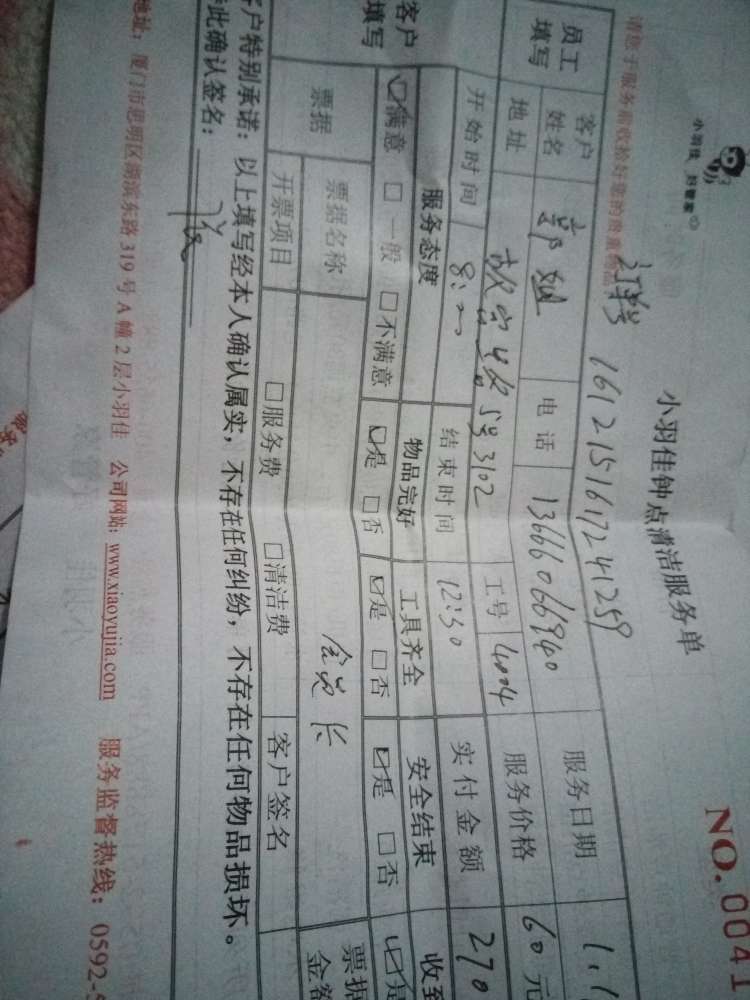 小羽佳 好管家
小羽佳钟点清洁服务单
NO. 0041
请您于服务前收拾好您的贵重物品
订单号 1612151617241259
员工填写
客户姓名 郭姐 电话 13666066940 服务日期 1.1
地址 5号3102 工号 4004 服务价格 60元
开始时间 8: 结束时间 12:30 实付金额 270
客户填写
服务态度 物品完好 工具齐全 安全结束 收到
☑满意 □一般 □不满意 ☑是 □否 ☑是 □否 ☑是 □否 ☑是
票据 票据名称 会员卡 票据金额
开票项目 □服务费 □清洁费 客户签名
客户特别承诺:以上填写经本人确认属实,不存在任何纠纷,不存在任何物品损坏。
特此确认签名:
地址:厦门市思明区湖滨东路319号A幢2层小羽佳 公司网站:www.xiaoyujia.com 服务监督热线:0592-5